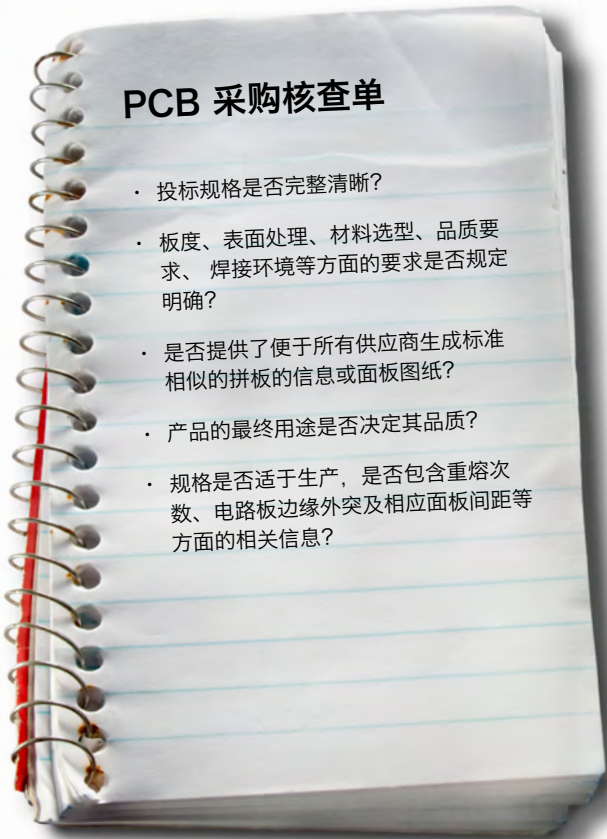 PCB 采购核查单
· 投标规格是否完整清晰？
· 板度、表面处理、材料选型、品质要
求、 焊接环境等方面的要求是否规定
明确？
· 是否提供了便于所有供应商生成标准
相似的拼板的信息或面板图纸？
· 产品的最终用途是否决定其品质？
· 规格是否适于生产，是否包含重熔次
数、电路板边缘外突及相应面板间距等
方面的相关信息？